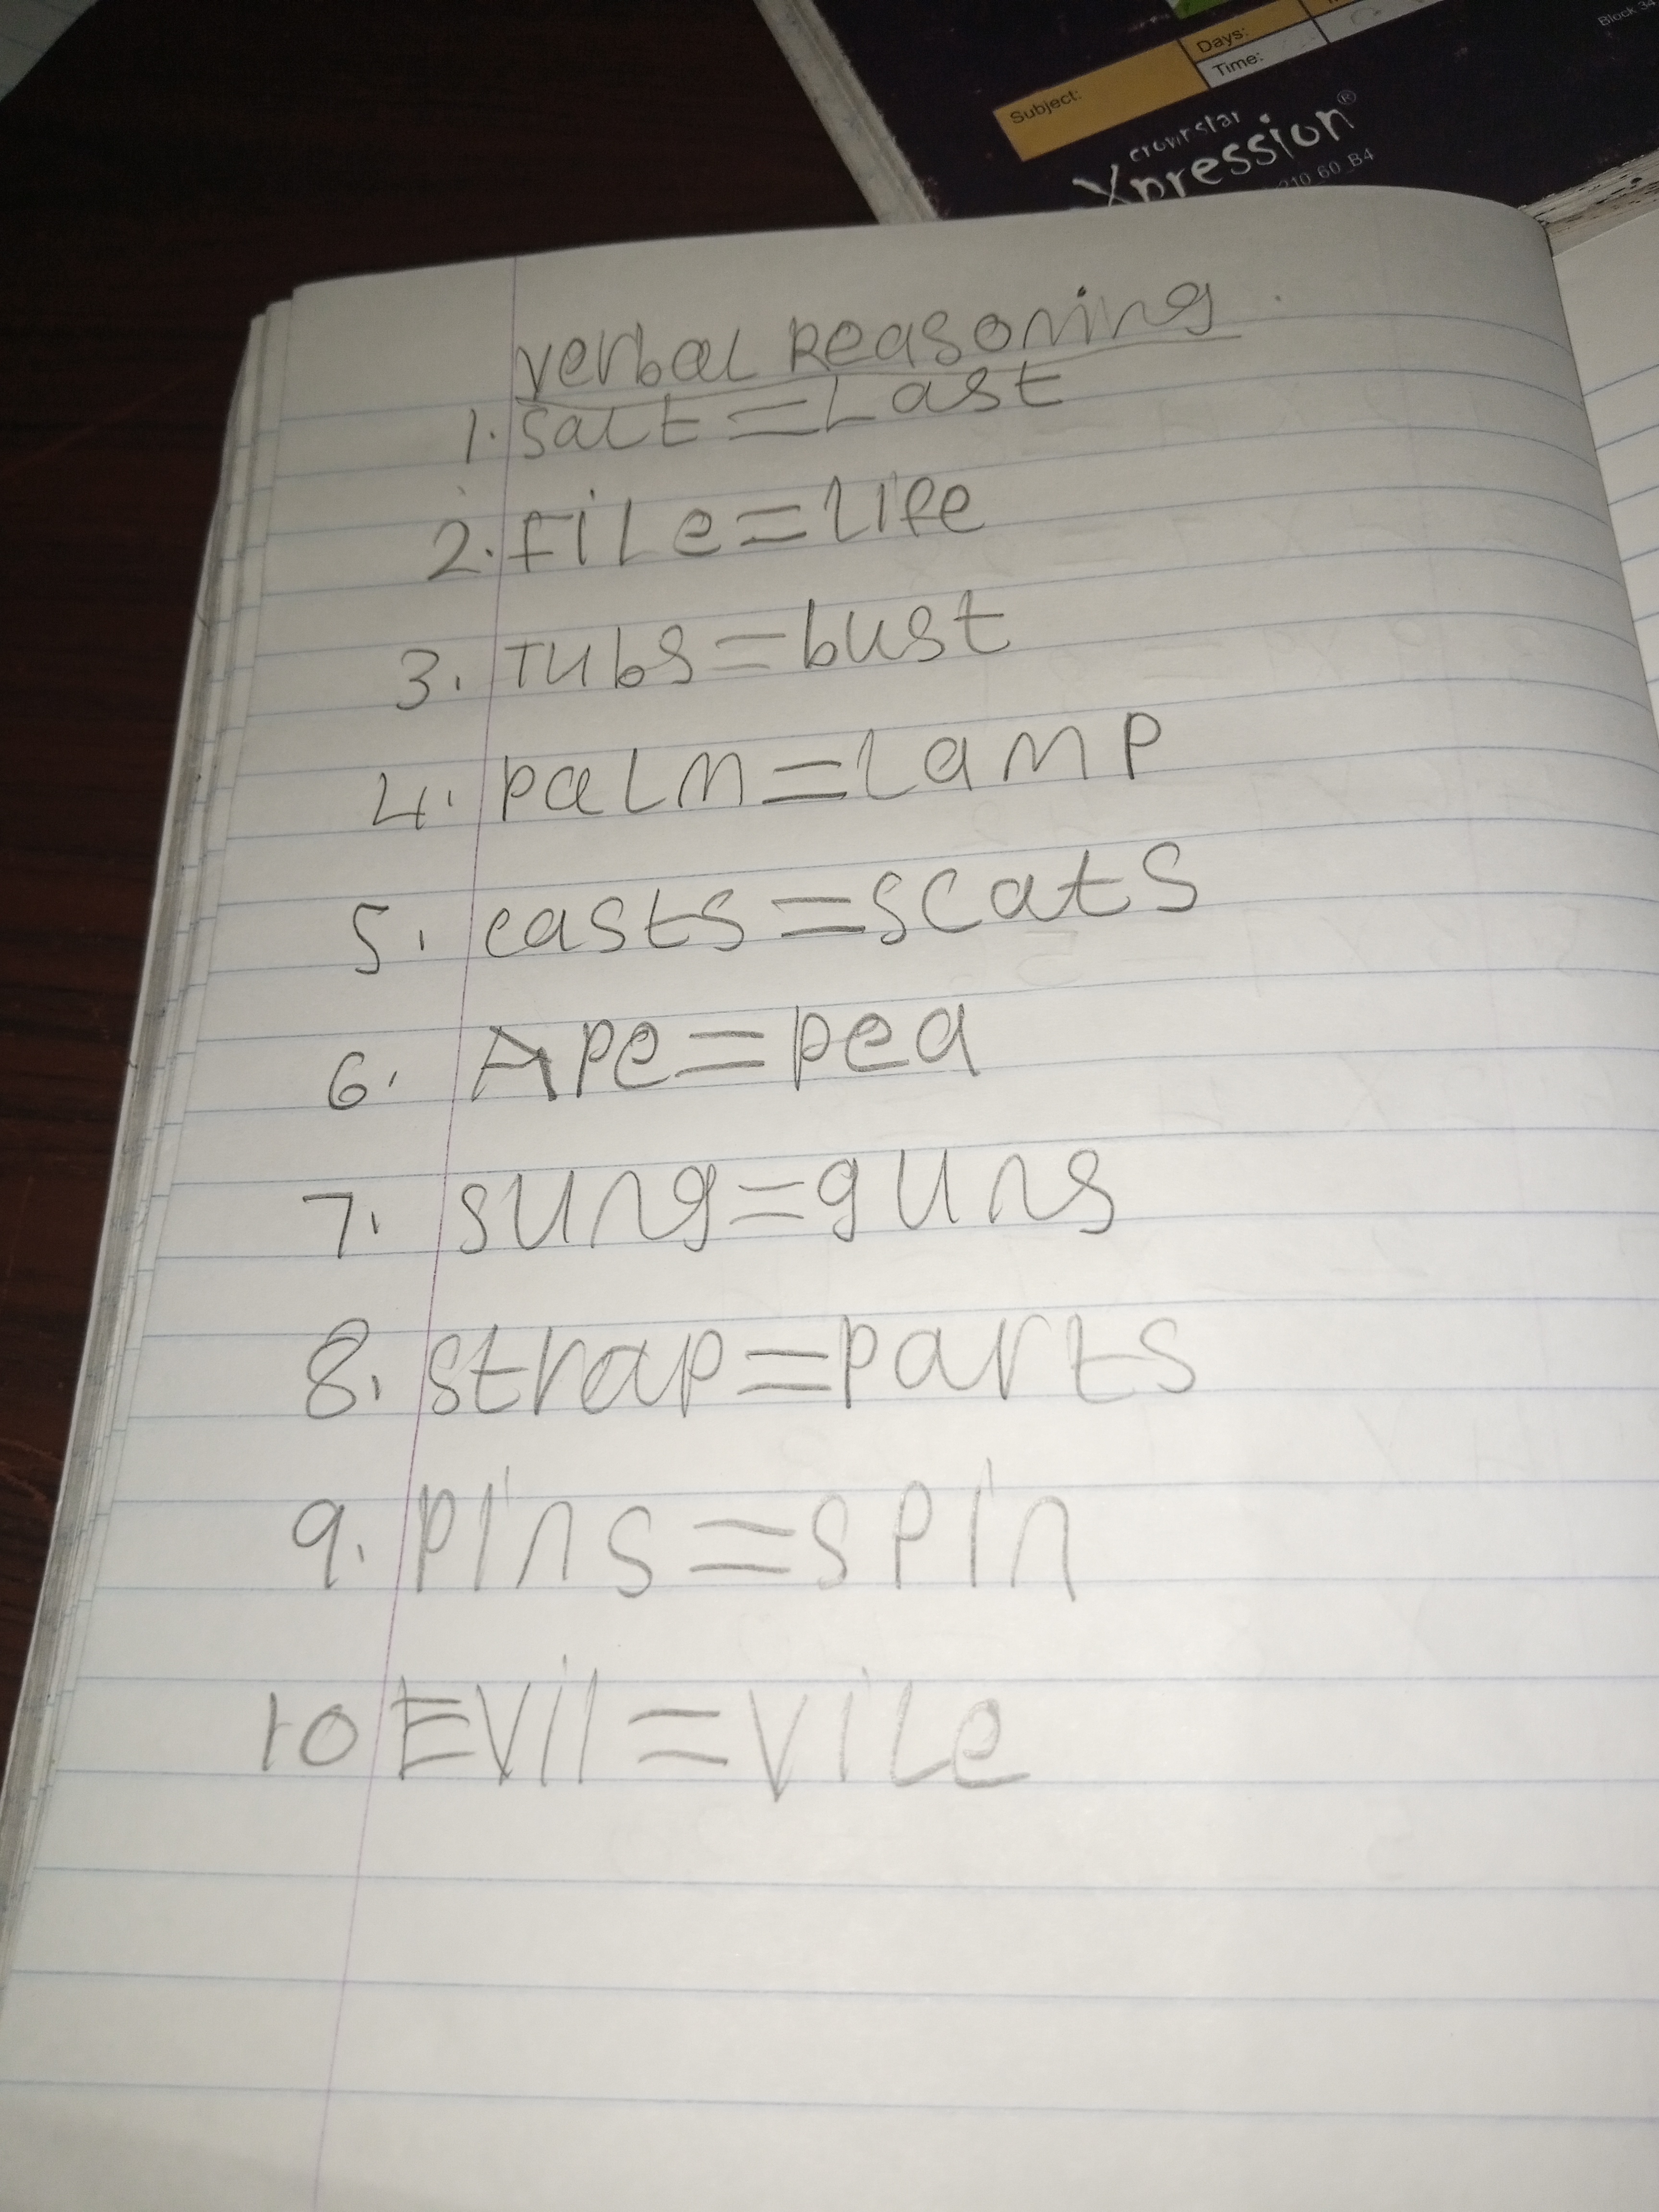 Block 34
Days:
Time:
Subject:
crownstar
Xpression®
210_60_B4
Verbal Reasoning
1. Salt = Last
2. File = Life
3. Tubs = bust
4. palm = Lamp
5. casts = scats
6. Ape = pea
7. sung = guns
8. strap = parts
9. pins = spin
10 Evil = vile